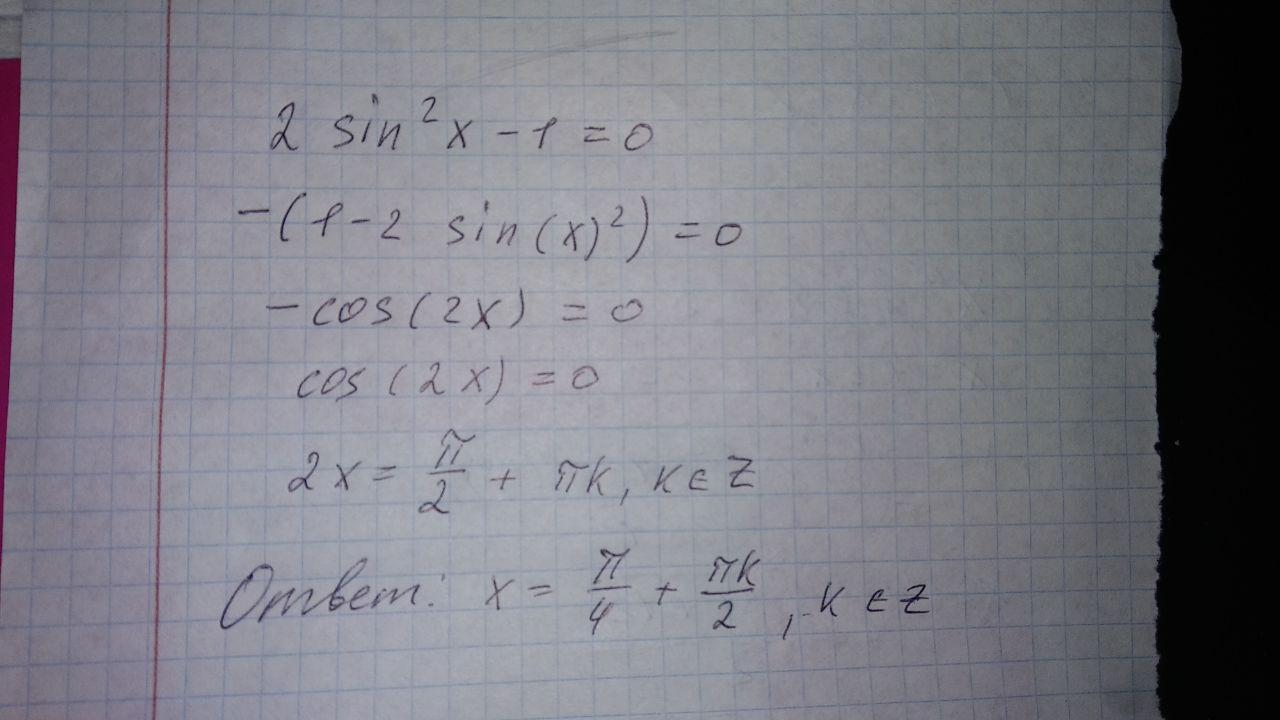 2 sin²x - 1 = 0
-(1 - 2 sin(x)²) = 0
-cos(2x) = 0
cos(2x) = 0
2x = π/2 + πk, k ∈ Z
Ответ: x = π/4 + πk/2, k ∈ Z